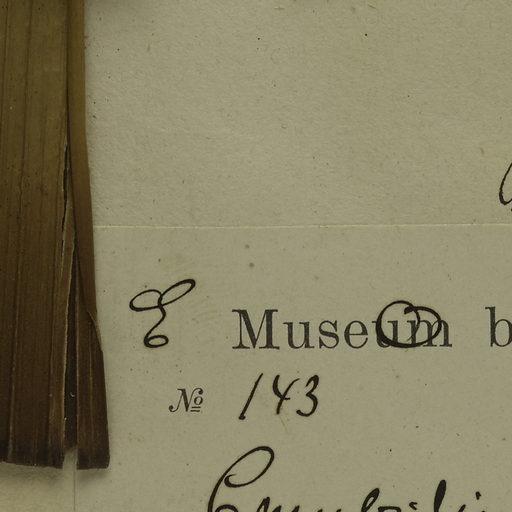 E Museum b
№ 143